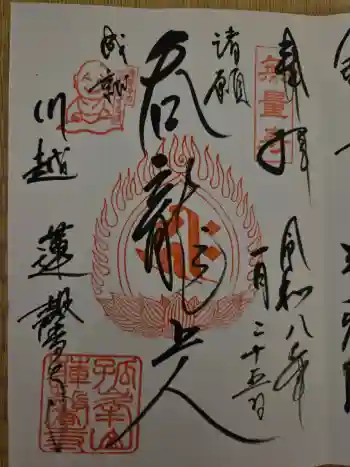 奉拝
令和八年
一月二十五日
無量寿
諸願
成就
呑龍上人
川越 蓮馨寺
孤峯山
蓮馨寺